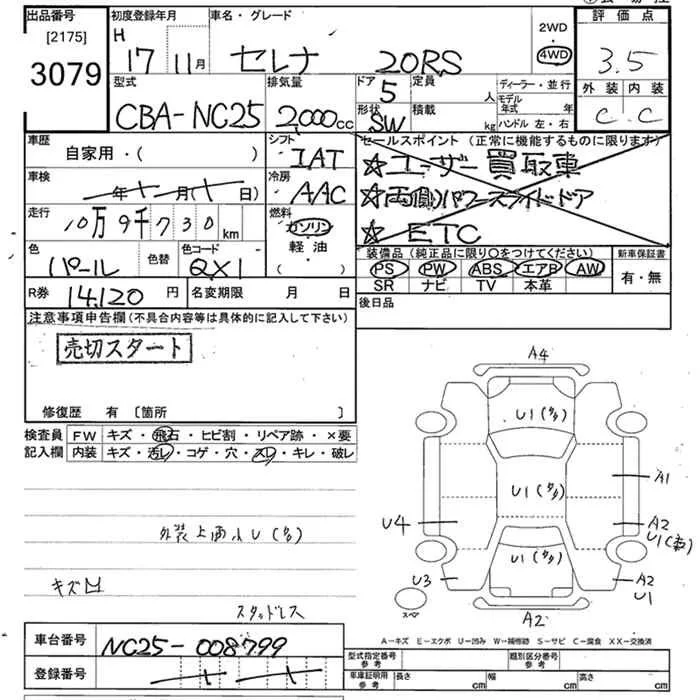 出品番号 初度登録年月 車名・グレード 評価点
[2175] H 2WD
3079 17 11月 セレナ 20RS 4WD 3.5
型式 排気量 ドア 定員 ディーラー・並行 外装 内装
CBA-NC25 2,000cc 5 人 モデル年式 年 C C
形状 積載 ハンドル 左・右
SW kg
車歴 シフト セールスポイント (正常に機能するものに限ります)
自家用・( ) IAT ☆ユーザー買取車
車検 冷房 ☆両側パワースライドドア
年 月( 日) AAC ☆ETC
走行 燃料
10万9千730km ガソリン
色 色替 色コード 軽油
パール QX1 (
装備品(純正品に限り○をつけてください) 新車保証書
PS PW ABS エアB AW 有・無
SR ナビ TV 本革
R券 14,120 円 名変期限 月 日 後日品
注意事項申告欄(不具合内容等は具体的に記入して下さい)
売切スタート
修復歴 有 [箇所 ]
検査員 FW キズ・飛石・ヒビ割・リペア跡・×要
記入欄 内装 キズ・汚レ・コゲ・穴・スレ・キレ・破レ
外装上面小U(多)
キズ
スタッドレス
A4
U1(多)
U1(多)
A1
U4
A2
U1(
U1(多)
U3
A2
U1
スペア
A2
A-キズ E-エクボ U-凹み W-補修跡 S-サビ C-腐食 XX-交換済
車台番号 NC25-008799
登録番号
型式指定番号 参考 類別区分番号 参考
車庫証明用 参考 長さ cm 幅 cm 高さ cm